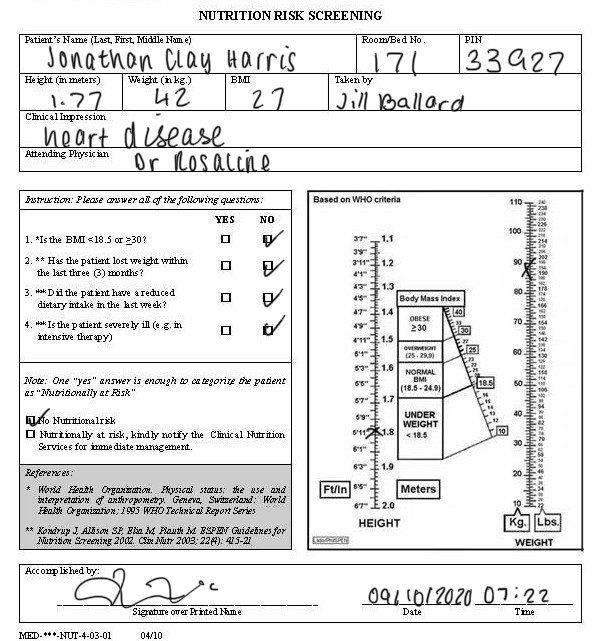 NUTRITION RISK SCREENING
Patient's Name (Last, First, Middle Name) Room/Bed No. PIN
Jonathan Clay Harris 171 33927
Height (in meters) Weight (in kg.) BMI Taken by
1.77 42 27 Jill Ballard
Clinical Impression
heart disease
Attending Physician Dr Rosaline
Instruction: Please answer all of the following questions:
YES NO
1. *Is the BMI <18.5 or ≥30?
2. ** Has the patient lost weight within
the last three (3) months?
3. ** Did the patient have a reduced
dietary intake in the last week?
4. ** Is the patient severely ill (e.g. in
intensive therapy)
Note: One "yes" answer is enough to categorize the patient
as "Nutritionally at Risk"
No Nutritional risk
Nutritionally at risk, kindly notify the Clinical Nutrition
Services for immediate management.
References:
* World Health Organization. Physical status: the use and
interpretation of anthropometry. Geneva, Switzerland: World
Health Organization; 1995 WHO Technical Report Series
** Kondrup J, Allison SP, Elia M, Plauth M. ESPEN Guidelines for
Nutrition Screening 2002. Clin Nutr 2003; 22(4): 415-21
Based on WHO criteria
3'7" 1.1
3'9"
3'11" 1.2
4'1"
4'3" 1.3
4'5"
4'7" 1.4
4'9"
4'11" 1.5
5'1"
5'3" 1.6
5'5"
5'7" 1.7
5'9"
5'11" 1.8
6'1"
6'3" 1.9
6'5"
6'7" 2.0
Ft/In Meters
HEIGHT
Body Mass Index
OBESE
≥30
OVERWEIGHT
(25 - 29,9)
NORMAL
BMI
(18.5 - 24.9)
UNDER
WEIGHT
< 18.5
40
30
25
18.5
10
110
100
90
80
70
60
50
40
30
20
10
Kg. Lbs.
WEIGHT
Accomplished by:
09/10/2020 07:22
Signature over Printed Name Date Time
MED-***-NUT-4-03-01 04/10